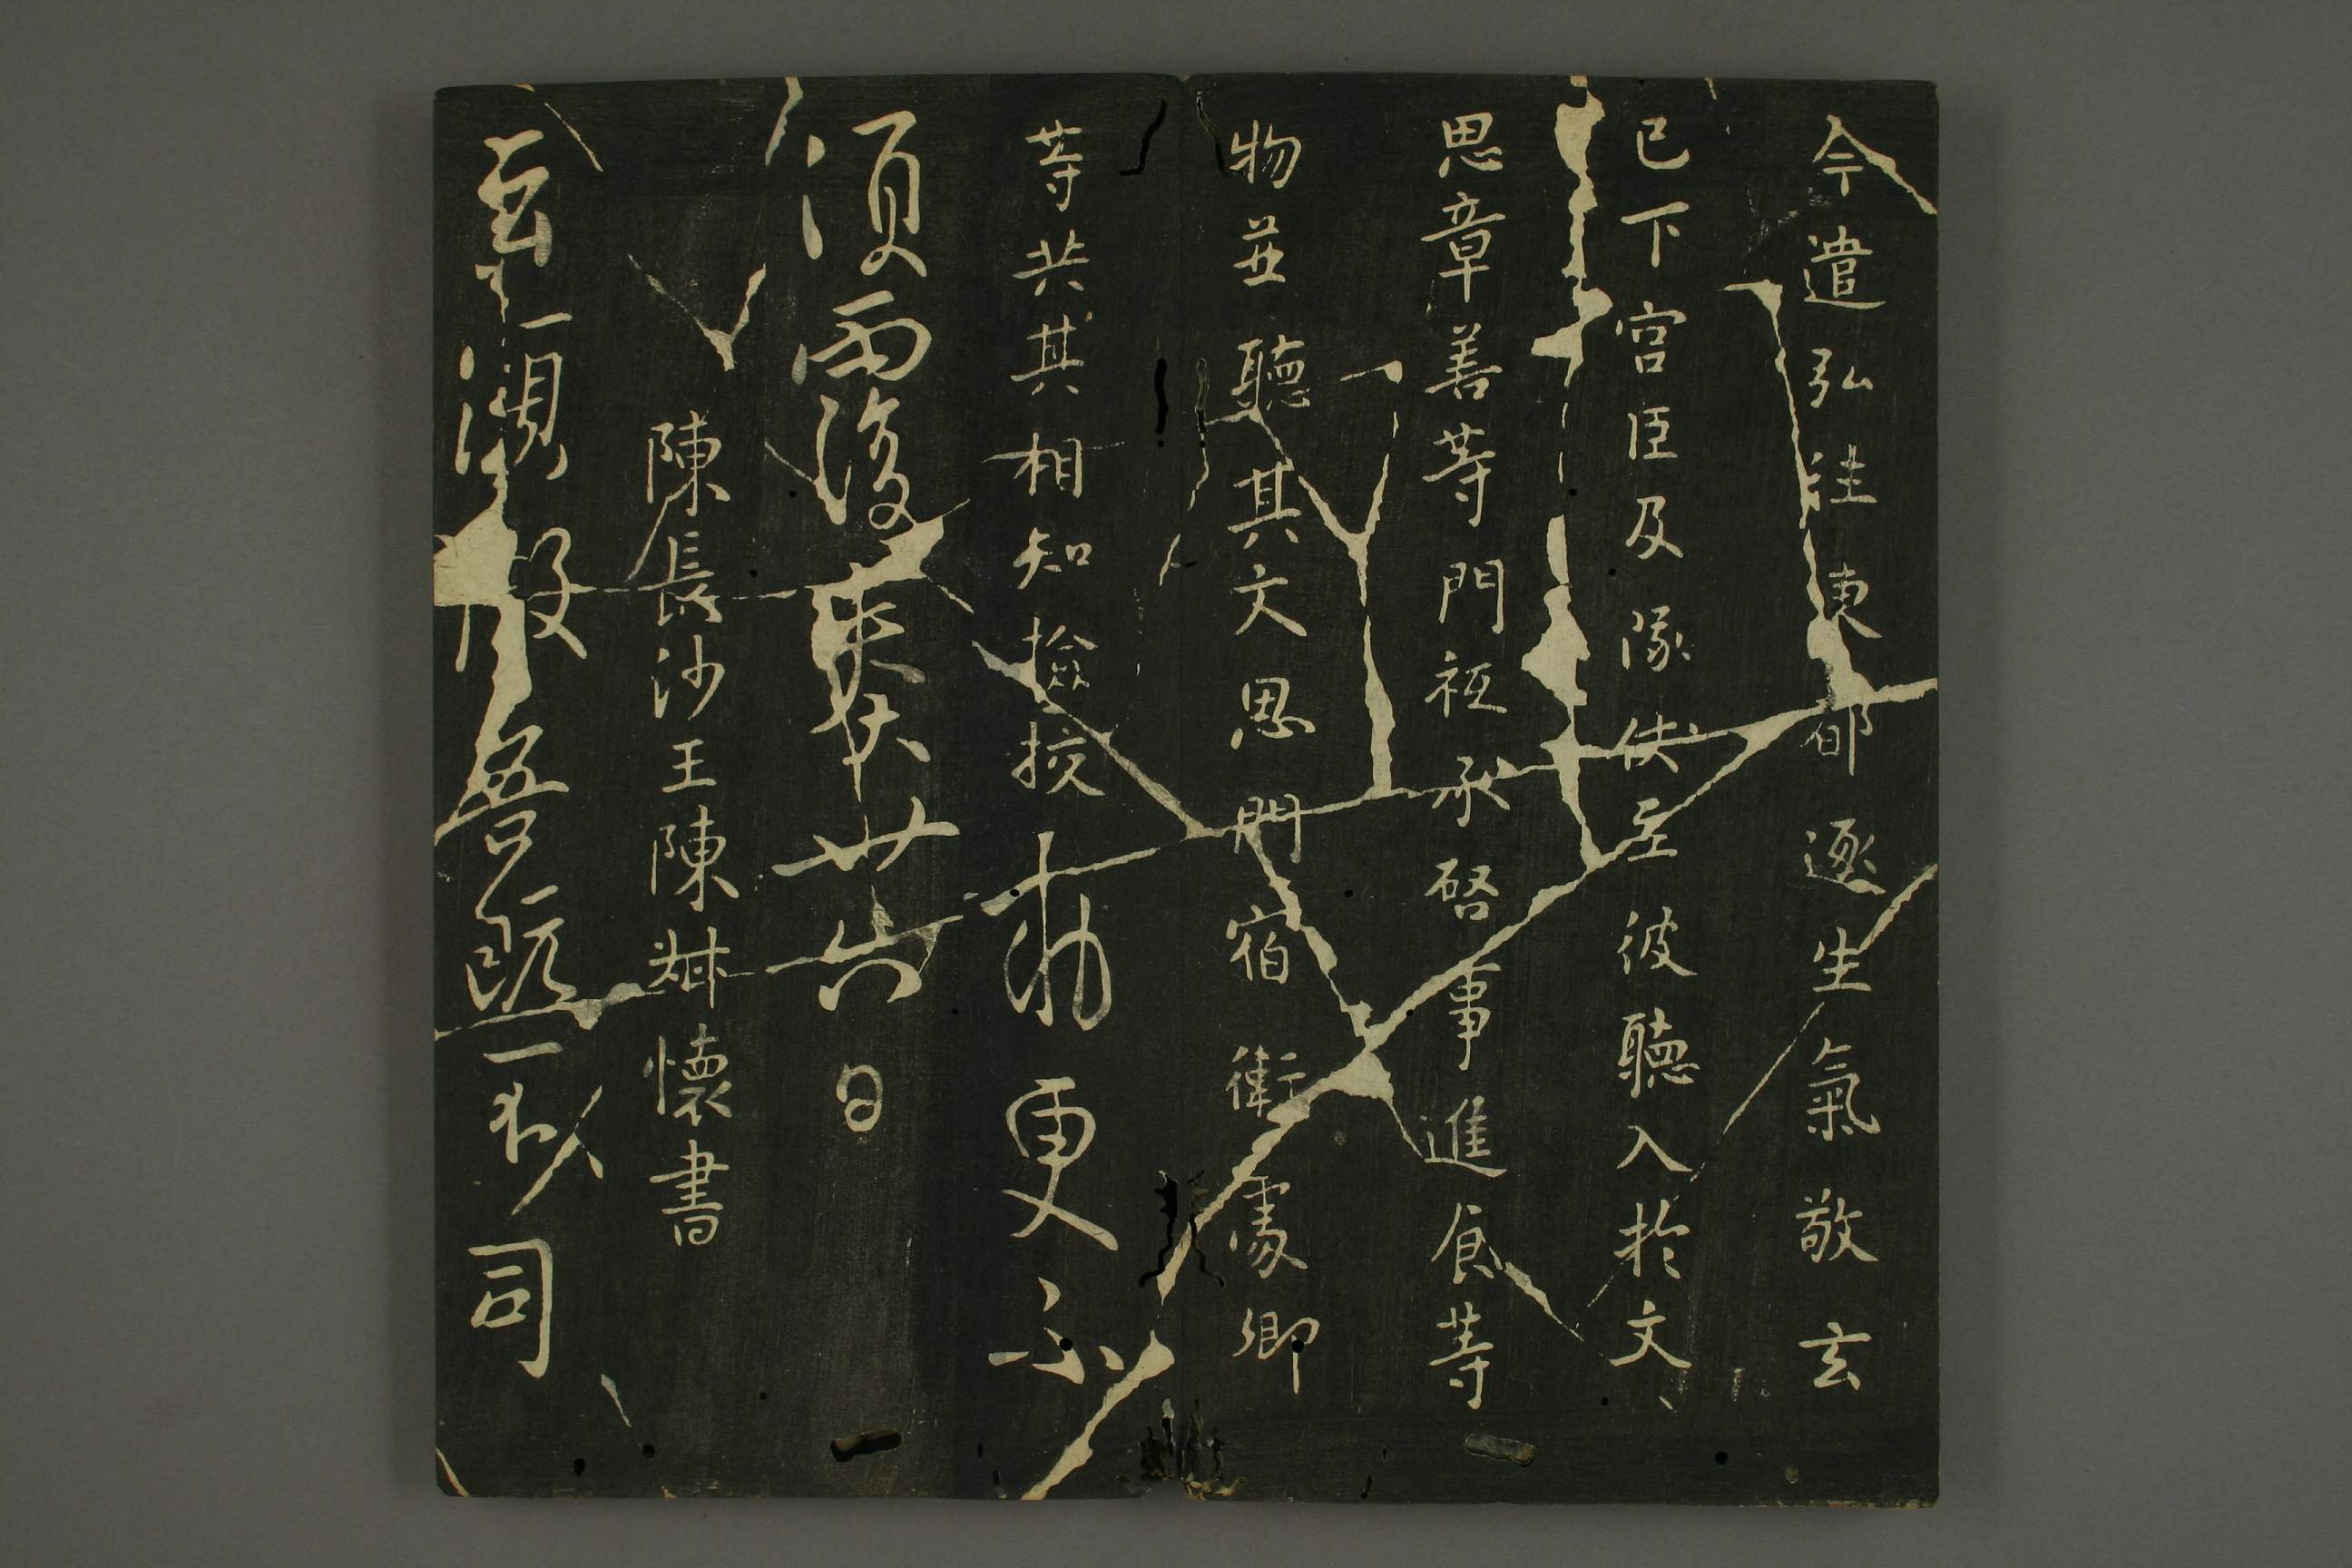 今遣弘往東都逐生氣敬玄
已下宮臣及隊使至彼聽入於文
思章善等門祗承啓事進食等
物並聽其文思門宿衛處卿
等共其相知撿挍勑更不
須奏廿六日
陳長沙王陳叔懷書
須吾既一司